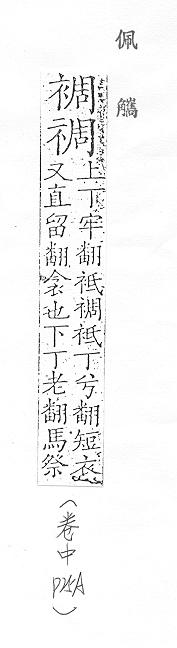 佩觽
裯禂
上丁牢翻袛裯袛丁兮翻短衣
又直留翻衾也下丁老翻馬祭
(卷中 P25A)